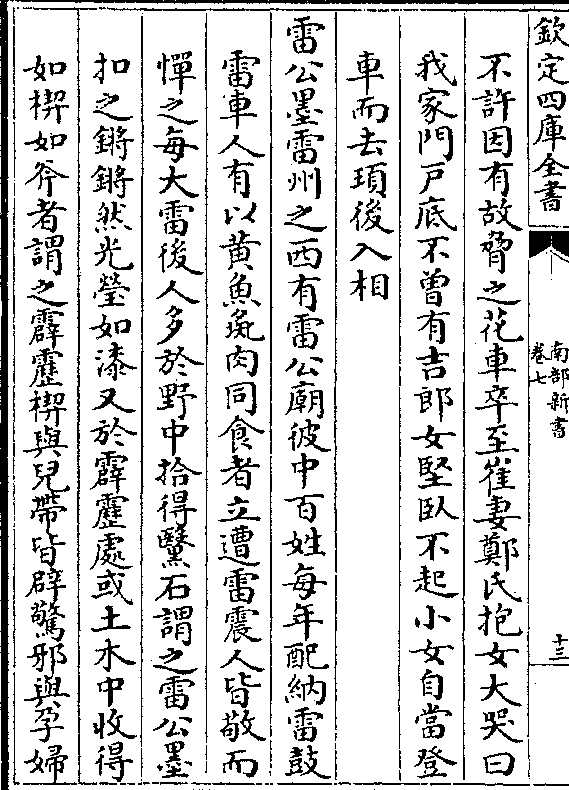 欽定四庫全書
南部新書
卷七
十三
不許因有故脅之花車卒至崔妻鄭氏抱女大哭曰
我家門戸底不曾有吉郎女堅臥不起小女自當登
車而去頊後入相
雷公墨雷州之西有雷公廟彼中百姓每年配納雷鼓
雷車人有以黄魚彘肉同食者立遭雷震人皆敬而
憚之每大雷後人多於野中拾得黳石謂之雷公墨
扣之鏘鏘然光瑩如漆又於霹靂處或土木中收得
如楔如斧者謂之霹靂楔與兒帶皆辟驚邪與孕婦